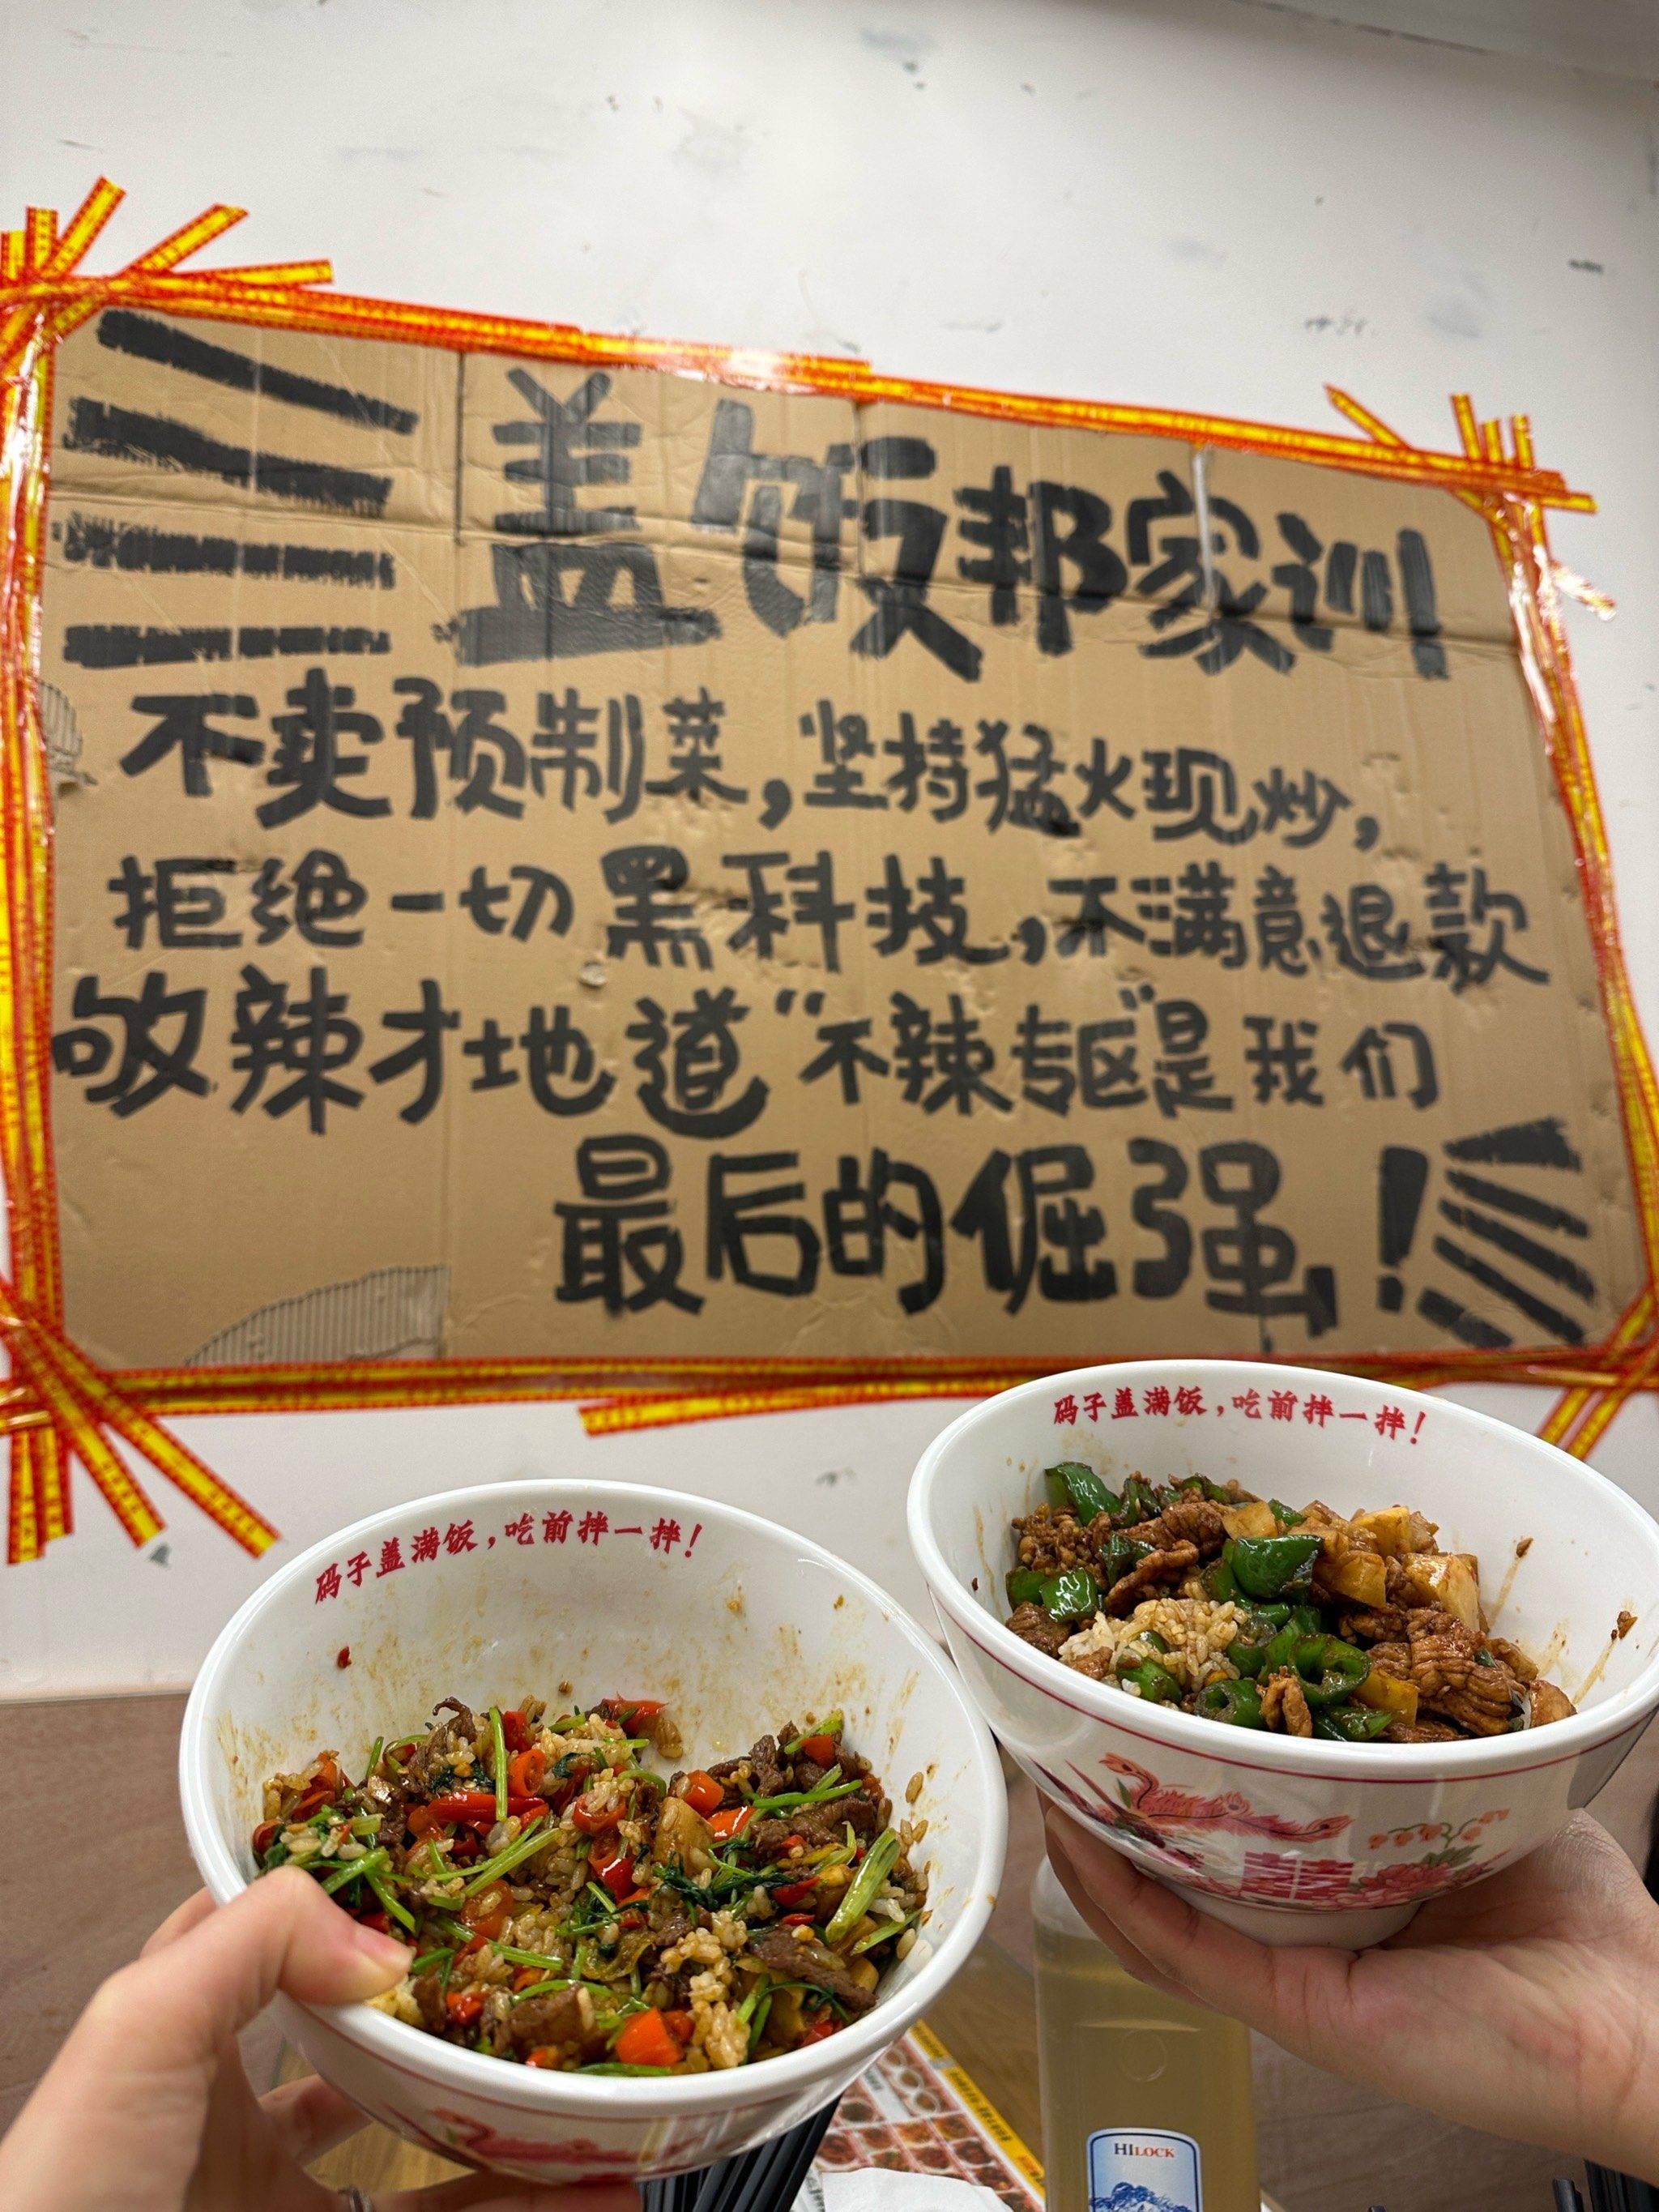 盖饭邦家训
不卖预制菜，坚持猛火现炒，
拒绝一切黑科技，不满意退款
敢辣才地道"不辣专区"是我们
最后的倔强！
码子盖满饭，吃前拌一拌！
码子盖满饭，吃前拌一拌！
HILOCK